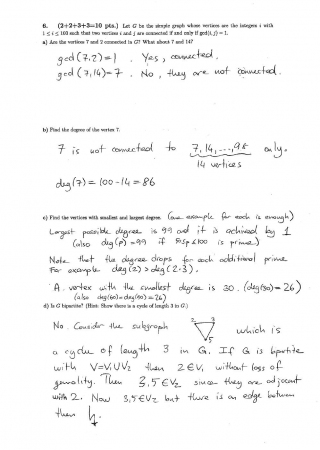 6. (2+2+3+3=10 pts.) Let G be the simple graph whose vertices are the integers i with
1 ≤ i ≤ 100 such that two vertices i and j are connected if and only if gcd(i, j) = 1.
a) Are the vertices 7 and 2 connected in G? What about 7 and 14?
gcd(7,2)=1 . Yes, connected.
gcd(7,14)=7 . No, they are not connected.
b) Find the degree of the vertex 7.
7 is not connected to 7, 14, ..., 98 only.
14 vertices
deg(7) = 100-14 = 86
c) Find the vertices with smallest and largest degree. (one example for each is enough)
Largest possible degree is 99 and it is achieved by 1
(also deg(p) = 99 if 50≤p≤100 is prime)
Note that the degree drops for each additional prime
For example deg(2) > deg(2·3).
A vertex with the smallest degree is 30. (deg(30)=26)
(also deg(60)=deg(90)=26)
d) Is G bipartite? (Hint: Show there is a cycle of length 3 in G.)
No. Consider the subgraph 2 3 5 which is
a cycle of length 3 in G. If G is bipartite
with V=V₁∪V₂ then 2∈V₁ without loss of
generality. Then 3,5∈V₂ since they are adjacent
with 2. Now 3,5∈V₂ but there is an edge between
them